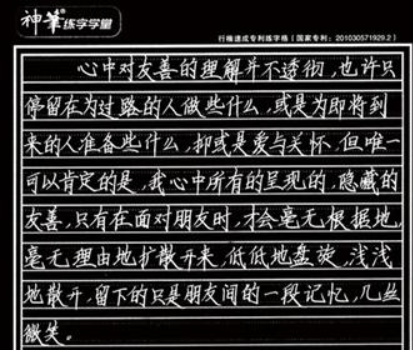 神筆®练字学堂
行楷速成专利练字格（国家专利：201030571929.2）
心中对友善的理解并不透彻,也许只
停留在为过路的人做些什么,或是为即将到
来的人准备些什么,抑或是爱与关怀.但唯一
可以肯定的是,我心中所有的呈现的,隐藏的
友善,只有在面对朋友时,才会毫无根据地,
毫无理由地扩散开来,低低地盘旋,浅浅
地散开,留下的只是朋友间的一段记忆,几丝
微笑。